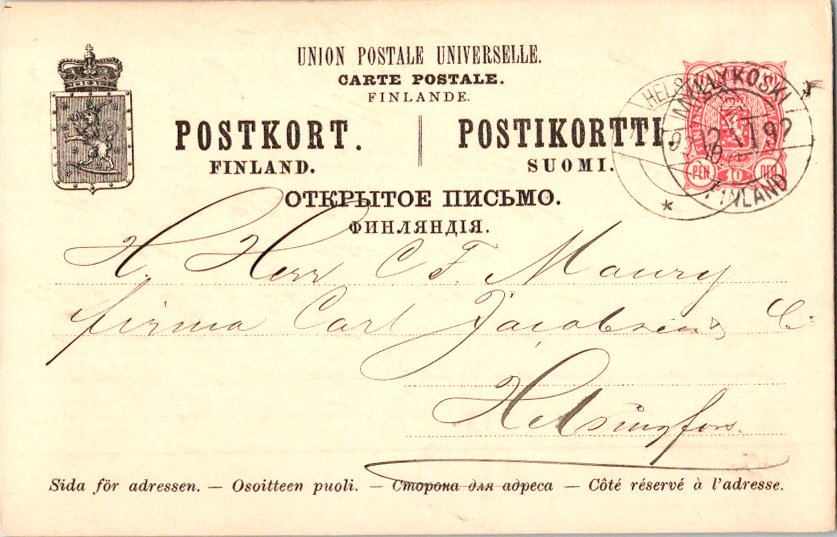 UNION POSTALE UNIVERSELLE.
CARTE POSTALE.
FINLANDE.
POSTKORT. POSTIKORTTI.
FINLAND. SUOMI.
ОТКРЫТОЕ ПИСЬМО.
ФИНЛЯНДІЯ.
MYLLYKOSKI
92
FINLAND
PEN 10 ПЕН
H. Herr C F. Maury
firma Carl Jacobsen & C:
Helsingfors.
Sida för adressen. — Osoitteen puoli. — Сторона для адреса — Côté réservé à l'adresse.